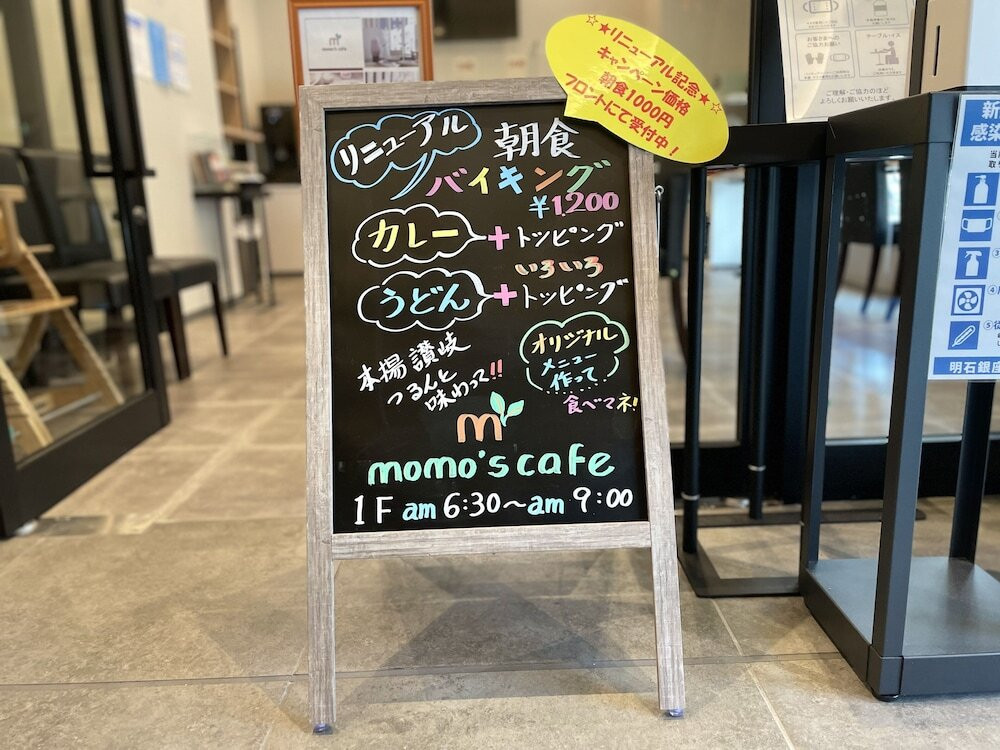 momo's cafe
☆★リニューアル記念★☆
キャンペーン価格
朝食1000円
フロントにて受付中！
リニューアル
朝食
バイキング
¥1,200
カレー+トッピング
いろいろ
うどん+トッピング
本場讃岐
つるんと
味わって!!
オリジナル
メニュー
作って
食べてマネ!
m
momo's cafe
1F am 6:30～am 9:00
お客さまへの
ご協力お願い
テーブル・イス
ご理解・ご協力のほど
よろしくお願いいたします。
新
感染
③
④
⑤従
明石銀座